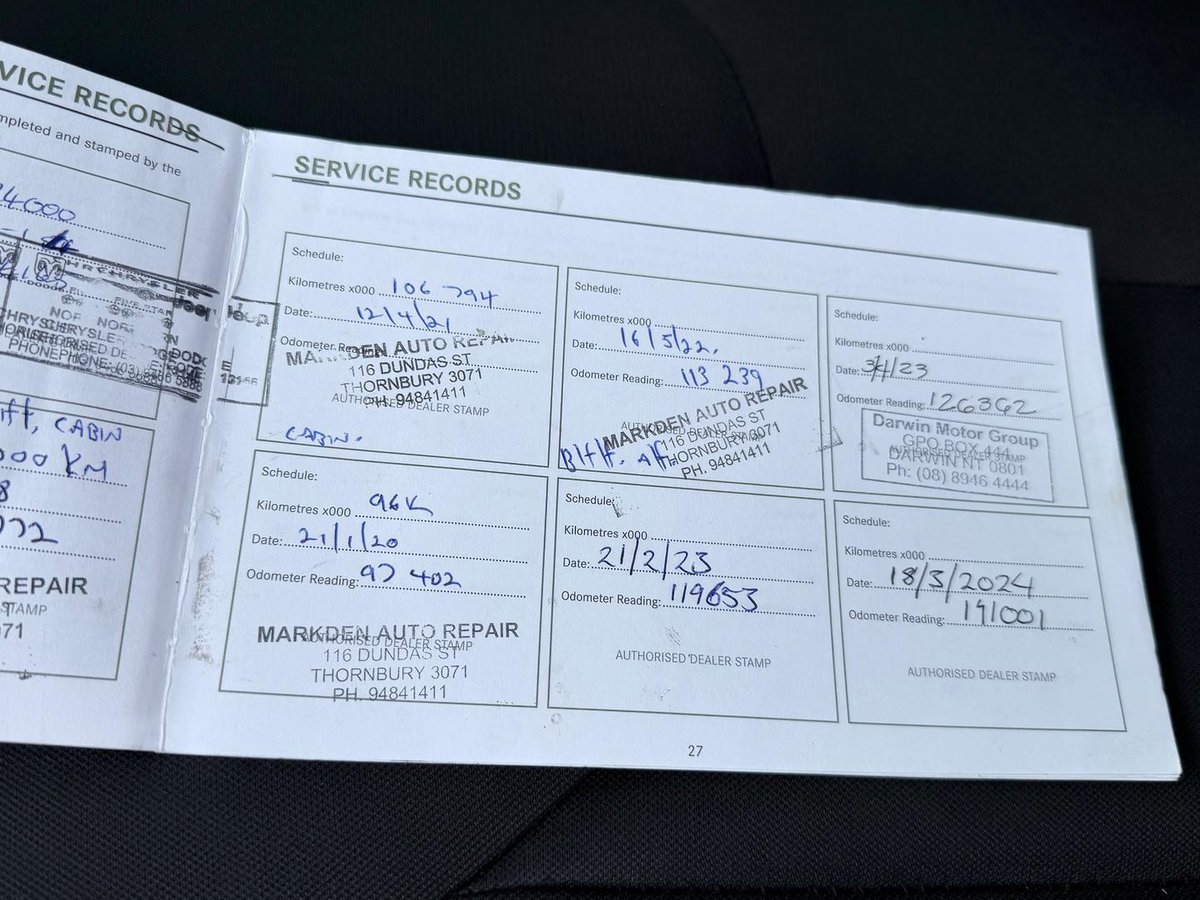 VICE RECORDS
mpleted and stamped by the
4000
CHRYSLER
Jeep
DODGE
PHONE: (03)
ift, CABIN
000 KM
8
REPAIR
STAMP
71
SERVICE RECORDS
Schedule:
Kilometres x000 106 794
Date: 12/4/21
Odometer Rea
MARKDEN AUTO REPAIR
116 DUNDAS ST
THORNBURY 3071
PH. 94841411
AUTHORISED DEALER STAMP
CABIN.
Schedule:
Kilometres x000 96K
Date: 21/1/20
Odometer Reading: 97 402
MARKDEN AUTO REPAIR
AUTHORISED DEALER STAMP
116 DUNDAS ST
THORNBURY 3071
PH. 94841411
Schedule:
Kilometres x000
Date: 16/5/22.
Odometer Reading: 113 239
MARKDEN AUTO REPAIR
116 DUNDAS ST
THORNBURY 3071
PH. 94841411
Schedule:
Kilometres x000
Date: 21/2/23
Odometer Reading: 119653
AUTHORISED DEALER STAMP
Schedule:
Kilometres x000
Date: 3/4/23
Odometer Reading: 126362
Darwin Motor Group
GPO BOX 444
AUTHORISED DEALER STAMP
DARWIN NT 0801
Ph: (08) 8946 4444
Schedule:
Kilometres x000
Date: 18/3/2024
Odometer Reading: 191001
AUTHORISED DEALER STAMP
27